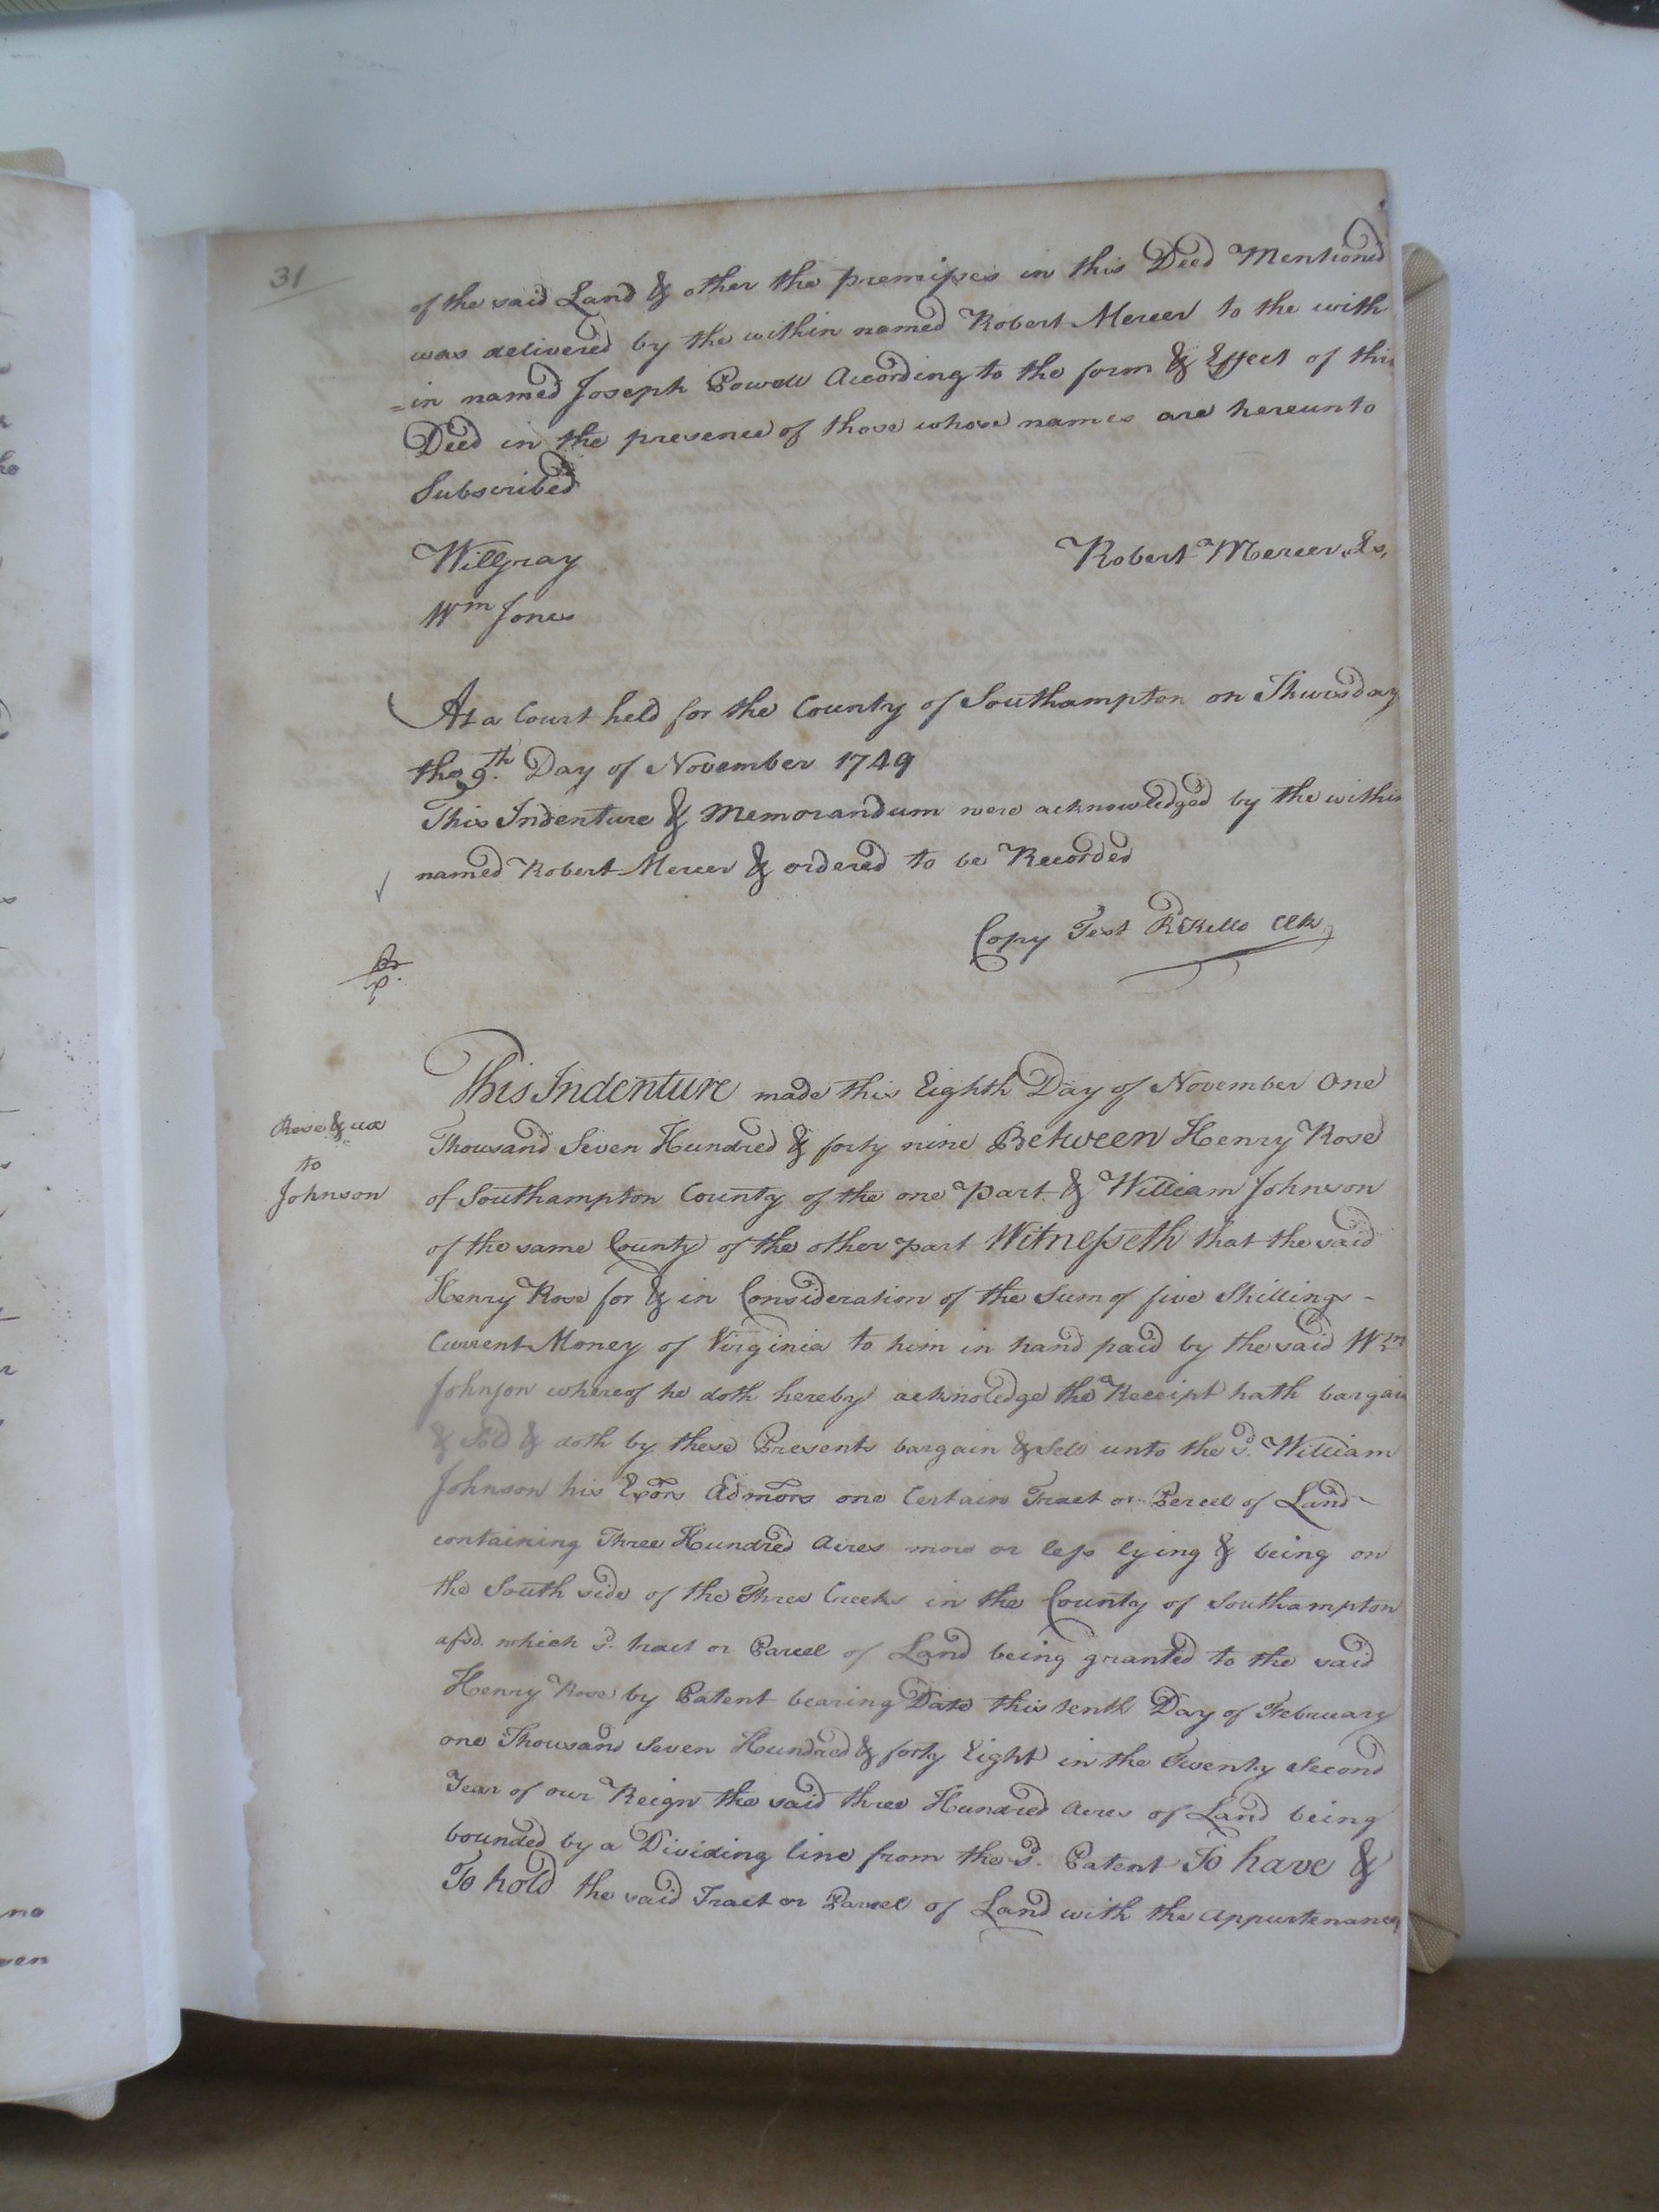 31
of the said Land & other the premisses in this Deed Mentioned
was delivered by the within named Robert Mercer to the with
=in named Joseph Powell According to the form & Effect of this
Deed in the presence of those whose names are hereunto
Subscribed
Will Gray
Robert Mercer Ls,
Wm Jones
At a Court held for the County of Southampton on Thursday
the 9th Day of November 1749
This Indenture & Memorandum were acknowledged by the within
named Robert Mercer & ordered to be Recorded
Copy Test RKello Clk
This Indenture made this Eighth Day of November One
Rose & ux
to
Johnson
Thousand Seven Hundred & forty nine Between Henry Rose
of Southampton County of the one Part & William Johnson
of the same County of the other part Witnesseth that the said
Henry Rose for & in Consideration of the Sum of five Shillings -
Current Money of Virginia to him in hand paid by the said Wm
Johnson whereof he doth hereby acknoledge the Receipt hath bargain
& Sold & doth by these Presents bargain & Sell unto the sd. William
Johnson his Exors Admors one Certain Tract or Percel of Land
containing Three Hundred Acres more or less lying & being on
the South side of the Three Creeks in the County of Southampton
afsd. which sd. tract or Parcel of Land being granted to the said
Henry Rose by Patent bearing Date this tenth Day of February
one Thousand Seven Hundred & forty Eight in the Twenty Second
Year of our Reign the said three Hundred Acres of Land being
bounded by a Dividing line from the sd. Patent To have &
To hold the said Tract or Parcel of Land with the appurtenances
no
ven